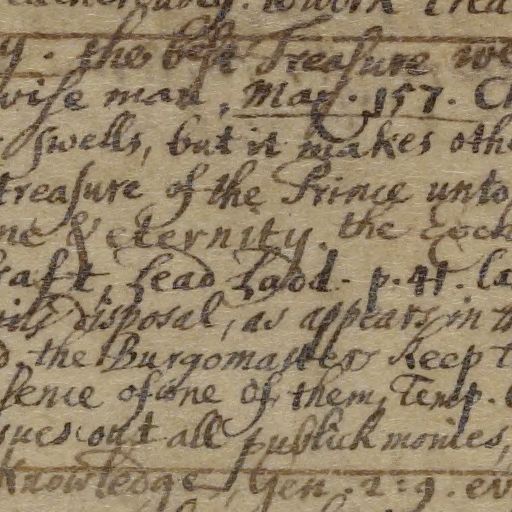 y. the best Treasure we
wise man, Mar. 157. C
swells, but it makes oth
treasure of the Prince unto
ne & eternity. the
raft, Lead p. 41. la
disposal, as appears in
the Burgomasters keep
sence of one of them, Temp.
out all publick monies,
Knowledge, Gen. 2: 9. ev